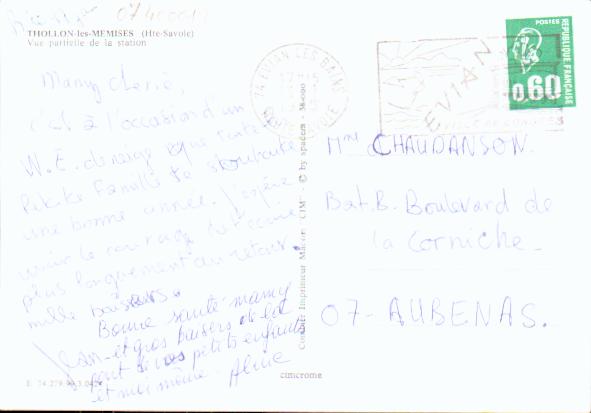 07400019
THOLLON-les-MEMISES (Hte-Savoie)
Vue partielle de la station
Mamy chérie,
C'est à l'occasion d'un
W.E. de neige que toute la
Petite Famille te souhaite
une bonne année. J'espère
avoir le courage de t'écrire
plus longuement au retour.
mille baisers.
Bonne santé mamy
Jean et gros baisers de la
part de vos petits enfants
et moi même. Aline
E 74.279.99.3.0424
cimcrome
Combier Imprimeur Mâcon "CIM" © by spadem - Macon
74 EVIAN-LES-BAINS
HAUTE-SAVOIE
EVIAN
VILLE DE CONGRES
POSTES
REPUBLIQUE FRANÇAISE
0,60
Mme CHAUDANSON.
Bat.B. Boulevard de
la Corniche_
07-AUBENAS.